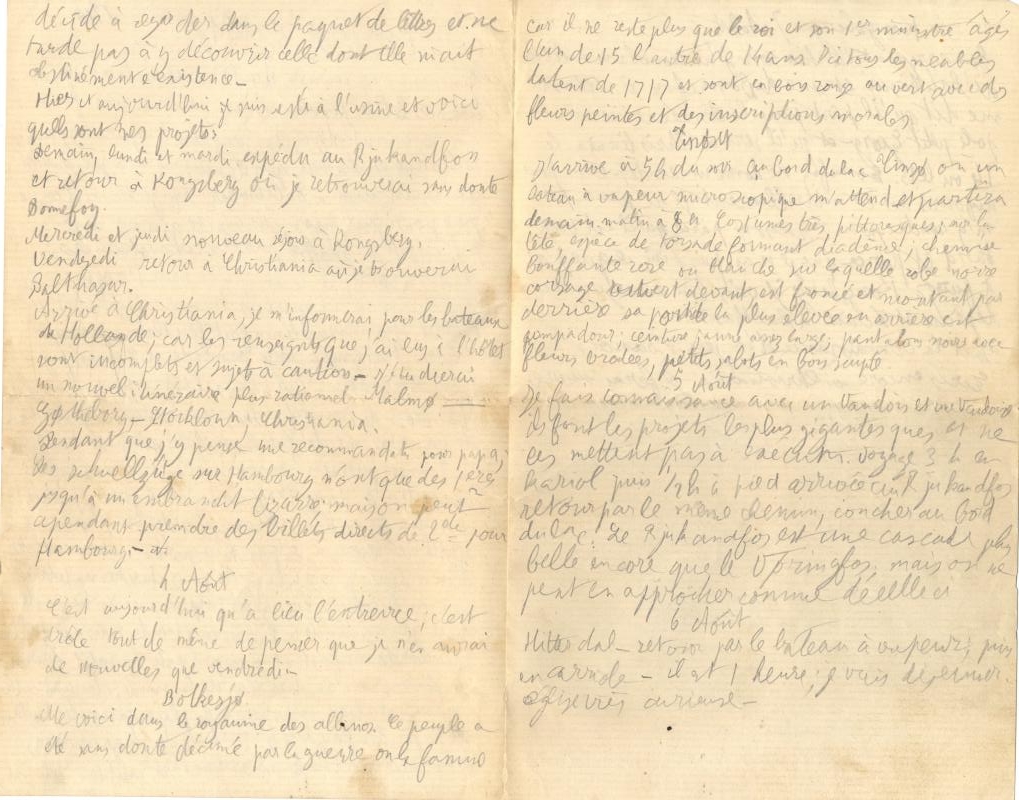 décide à regarder dans le paquet de lettres et ne
tarde pas à y découvrir celle dont elle niait
obstinément existence –
Hier et aujourd'hui je suis resté à l'usine et voici
quels sont mes projets
Demain, lundi et mardi, expédit au Rjukandfos
et retour à Kongsberg où je retrouverai sans doute
Bomefoy.
Mercredi et jeudi nouveau séjour à Kongsberg.
Vendredi retour à Christiania où je trouverai
Balthazar.
Arrivé à Christiania, je m'informerai pour les bateaux
de Hollande; car les renseigts que j'ai eus à l'hôtel
sont incomplets et sujets à caution –
un nouvel itinéraire plus rationnel Malmø
Gøtheborg – Stockholm. Christiania.
Pendant que j'y pense une recommandatn pour papa;
les schnellzüge sur Hambourg n'ont que des 1ères
jusqu'à un embrancht bizarre; mais on peut
cependant prendre des billets directs de 2de pour
Hambourg –
4 Août
C'est aujourd'hui qu'a lieu l'entrevue; c'est
drôle tout de même de penser que je n'en aurai
de nouvelles que vendredi –
Bolkesjø
Me voici dans le royaume des albinos. Le peuple a
été sans doute décimé par la guerre ou la famine
car il ne reste plus que le roi et son 1er ministre âgés
l'un de 15 l'autre de 14 ans. Ici tous les meubles
datent de 1717 et sont en bois rouge ou vert avec des
fleurs peintes et des inscriptions morales
Tinoset
J'arrive à 5h du soir au bord du lac Tinsø où un
bateau à vapeur microscopique m'attend et partira
demain matin à 8h Costumes très pittoresques; sur la
tête, espèce de torsade formant diadème; chemise
bouffante rose ou blanche sur laquelle robe noire
corsage ouvert devant est froncé et montant par
derrière sa partie la plus élevée en arrière est
pompadour; ceinture jaune assez large; pantalons noirs avec
fleurs brodées, petits sabots en bois sculpté
5 Août
Je fais connaissance avec un Vaudois et une Vaudoise
Ils font les projets les plus gigantesques et ne
les mettent pas à exécutn. Voyage 3 h en
kariol puis 1/2 h à pied arrivée au Rjukandfos
retour par le même chemin, coucher au bord
du lac. Le Rjukandfos est une cascade plus
belle encore que le Vøringfos, mais on ne
peut en approcher comme de celle ci
6 Août
Hitterdal – retour par le bateau à vapeur; puis
en carriole – il est 1 heure; je vais déjeuner.
église très curieuse –